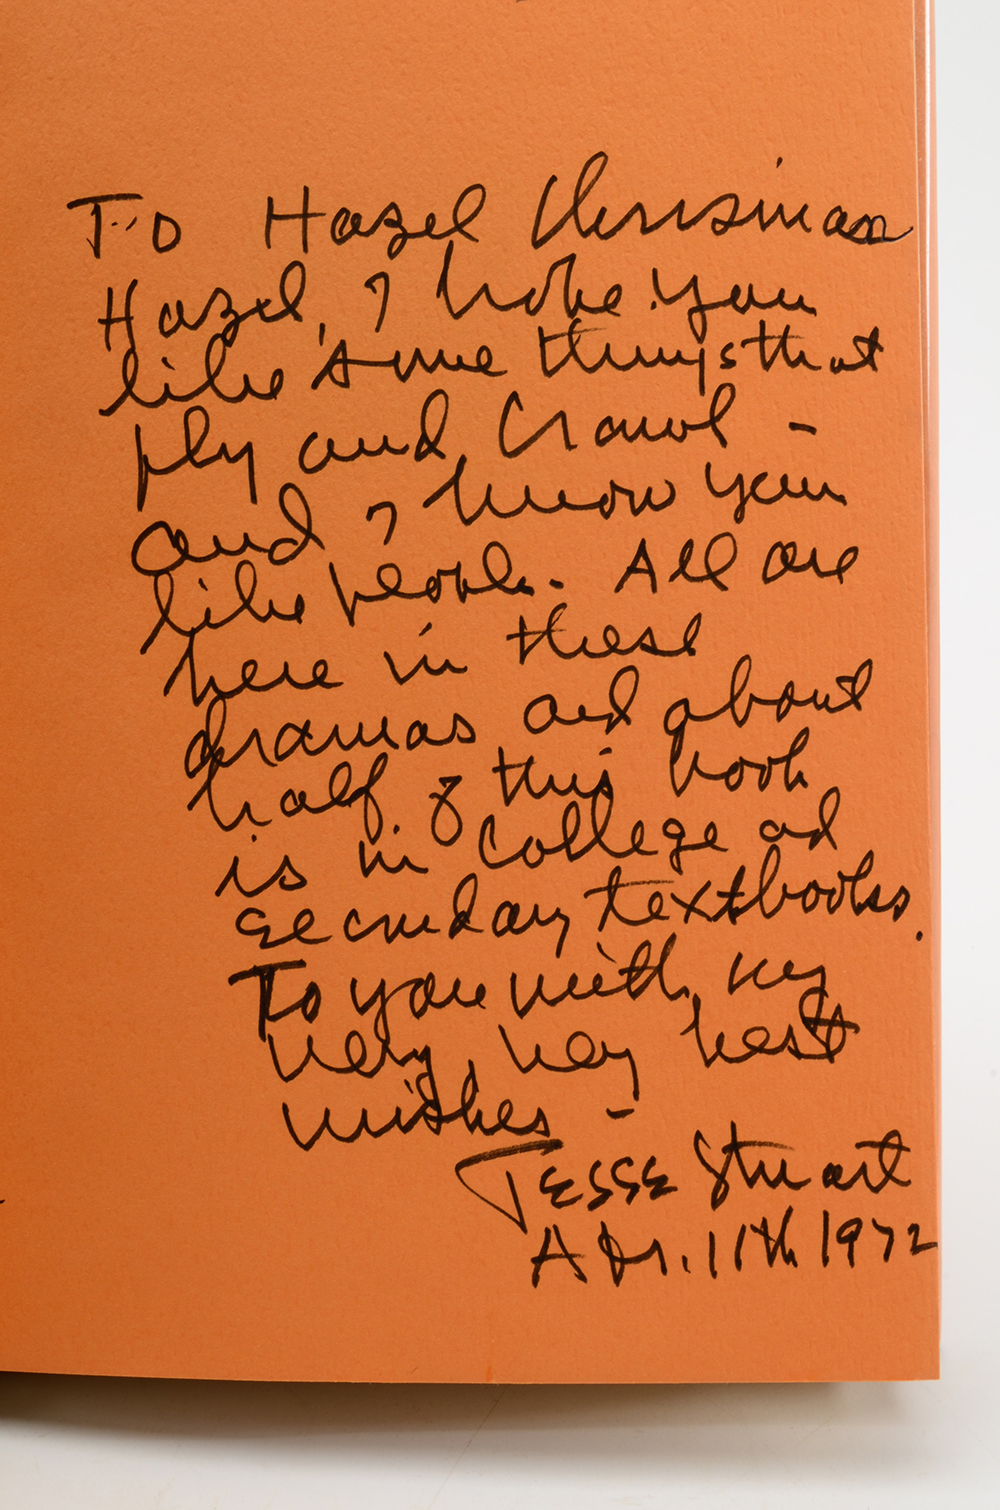 To Hazel Chrisman
Hazel, I hope you
like some things that
fly and crawl -
and I know you
like people. All are
here in these
dramas and about
half of this book
is in college ad
secondary textbooks.
To you with my
very, very best
wishes -
JESSE Stuart
Apr. 11th 1972